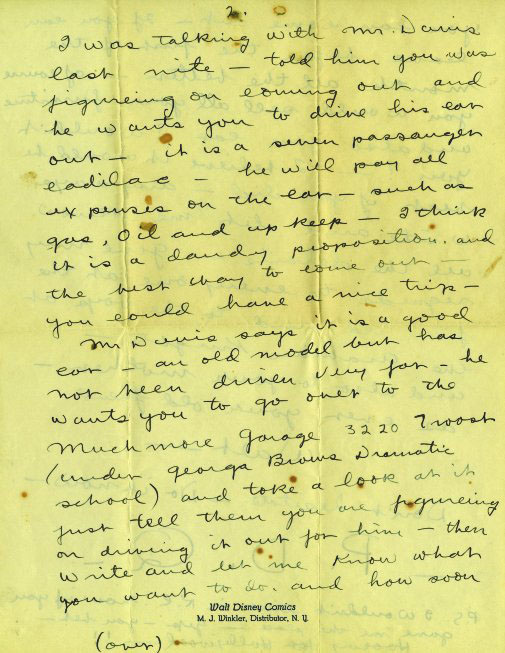 2.
I was talking with Mr. Davis
last nite — told him you was
figureing on coming out and
he wants you to drive his car
out — it is a seven passauger
cadilac — he will pay all
expenses on the car — such as
gas, Oil and up keep — I think
it is a dandy proposition. and
the best way to come out —
you could have a nice trip —
Mr. Davis says it is a good
car — an old model but has
not been driven very far. he
wants you to go over to the
Muchmore Garage 3220 Troost
(under Georga Browns Dramatic
school) and take a look at it
just tell them you are figureing
on driving it out for him — then
write and let me know what
you want to do. and how soon
Walt Disney Comics
M. J. Winkler, Distributor, N. Y.
(over)